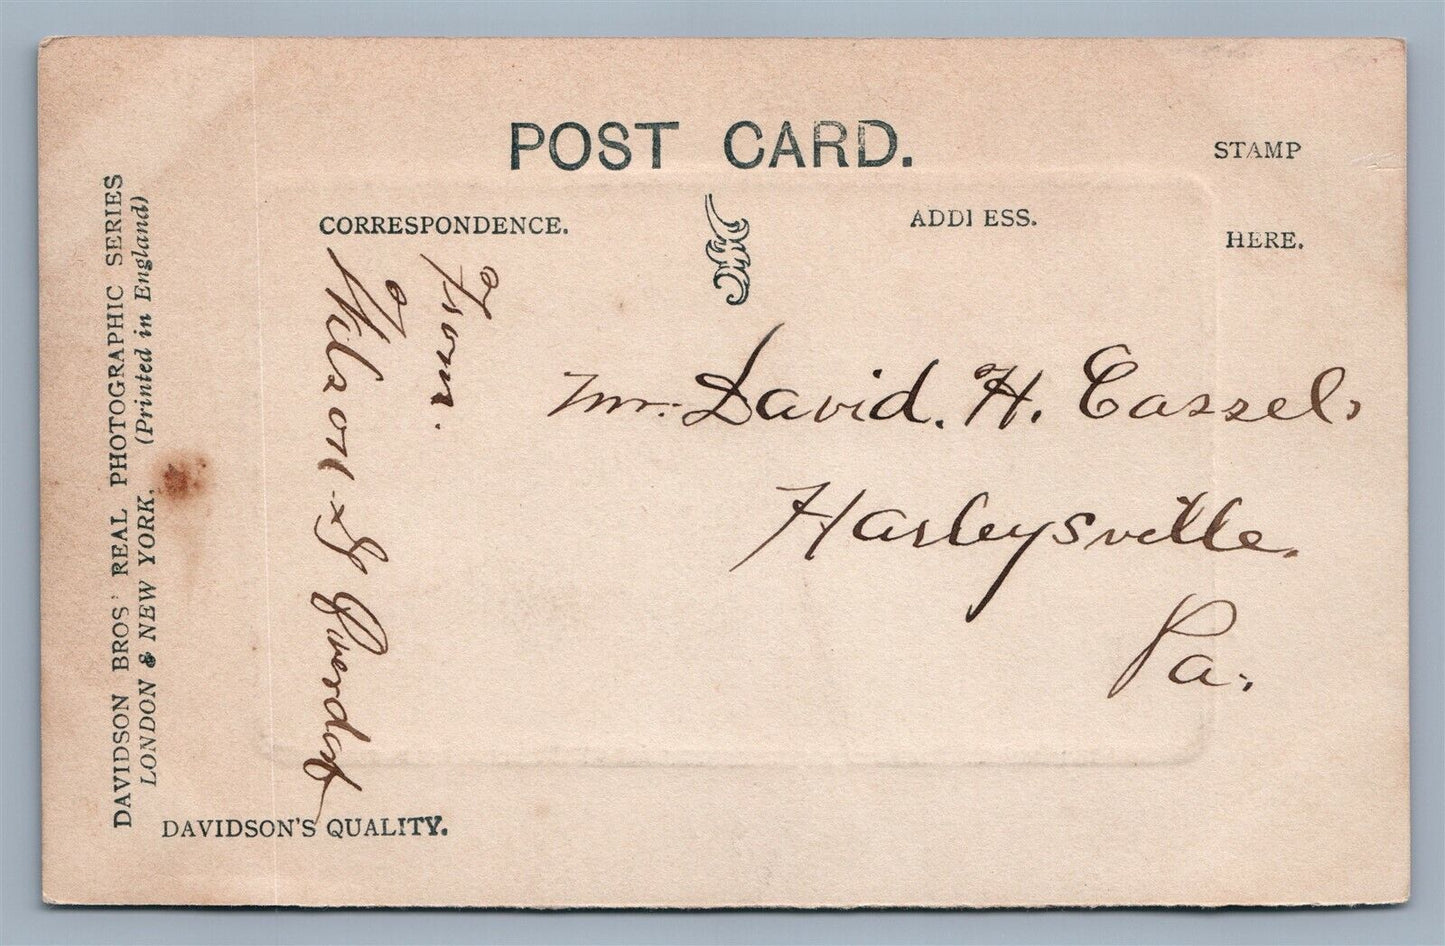 POST CARD.
STAMP
HERE.
CORRESPONDENCE.
ADDRESS.
From.
Wilson S
Mr. David. H. Cassel,
Harleysville.
Pa.
DAVIDSON BROS' REAL PHOTOGRAPHIC SERIES
LONDON & NEW YORK. (Printed in England)
DAVIDSON'S QUALITY.